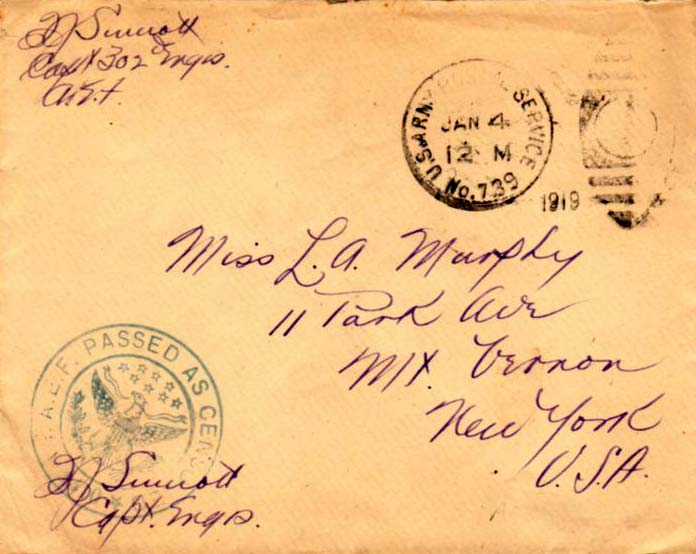 Capt 302 Engrs.
A.E.F.
U.S. ARMY POSTAL SERVICE
JAN 4
12 M
No. 739
1919
Miss L. A. Murphy
11 Park Ave
Mt. Vernon
New York
U.S.A.
A.E.F. PASSED AS CENSORED
Capt. Engrs.